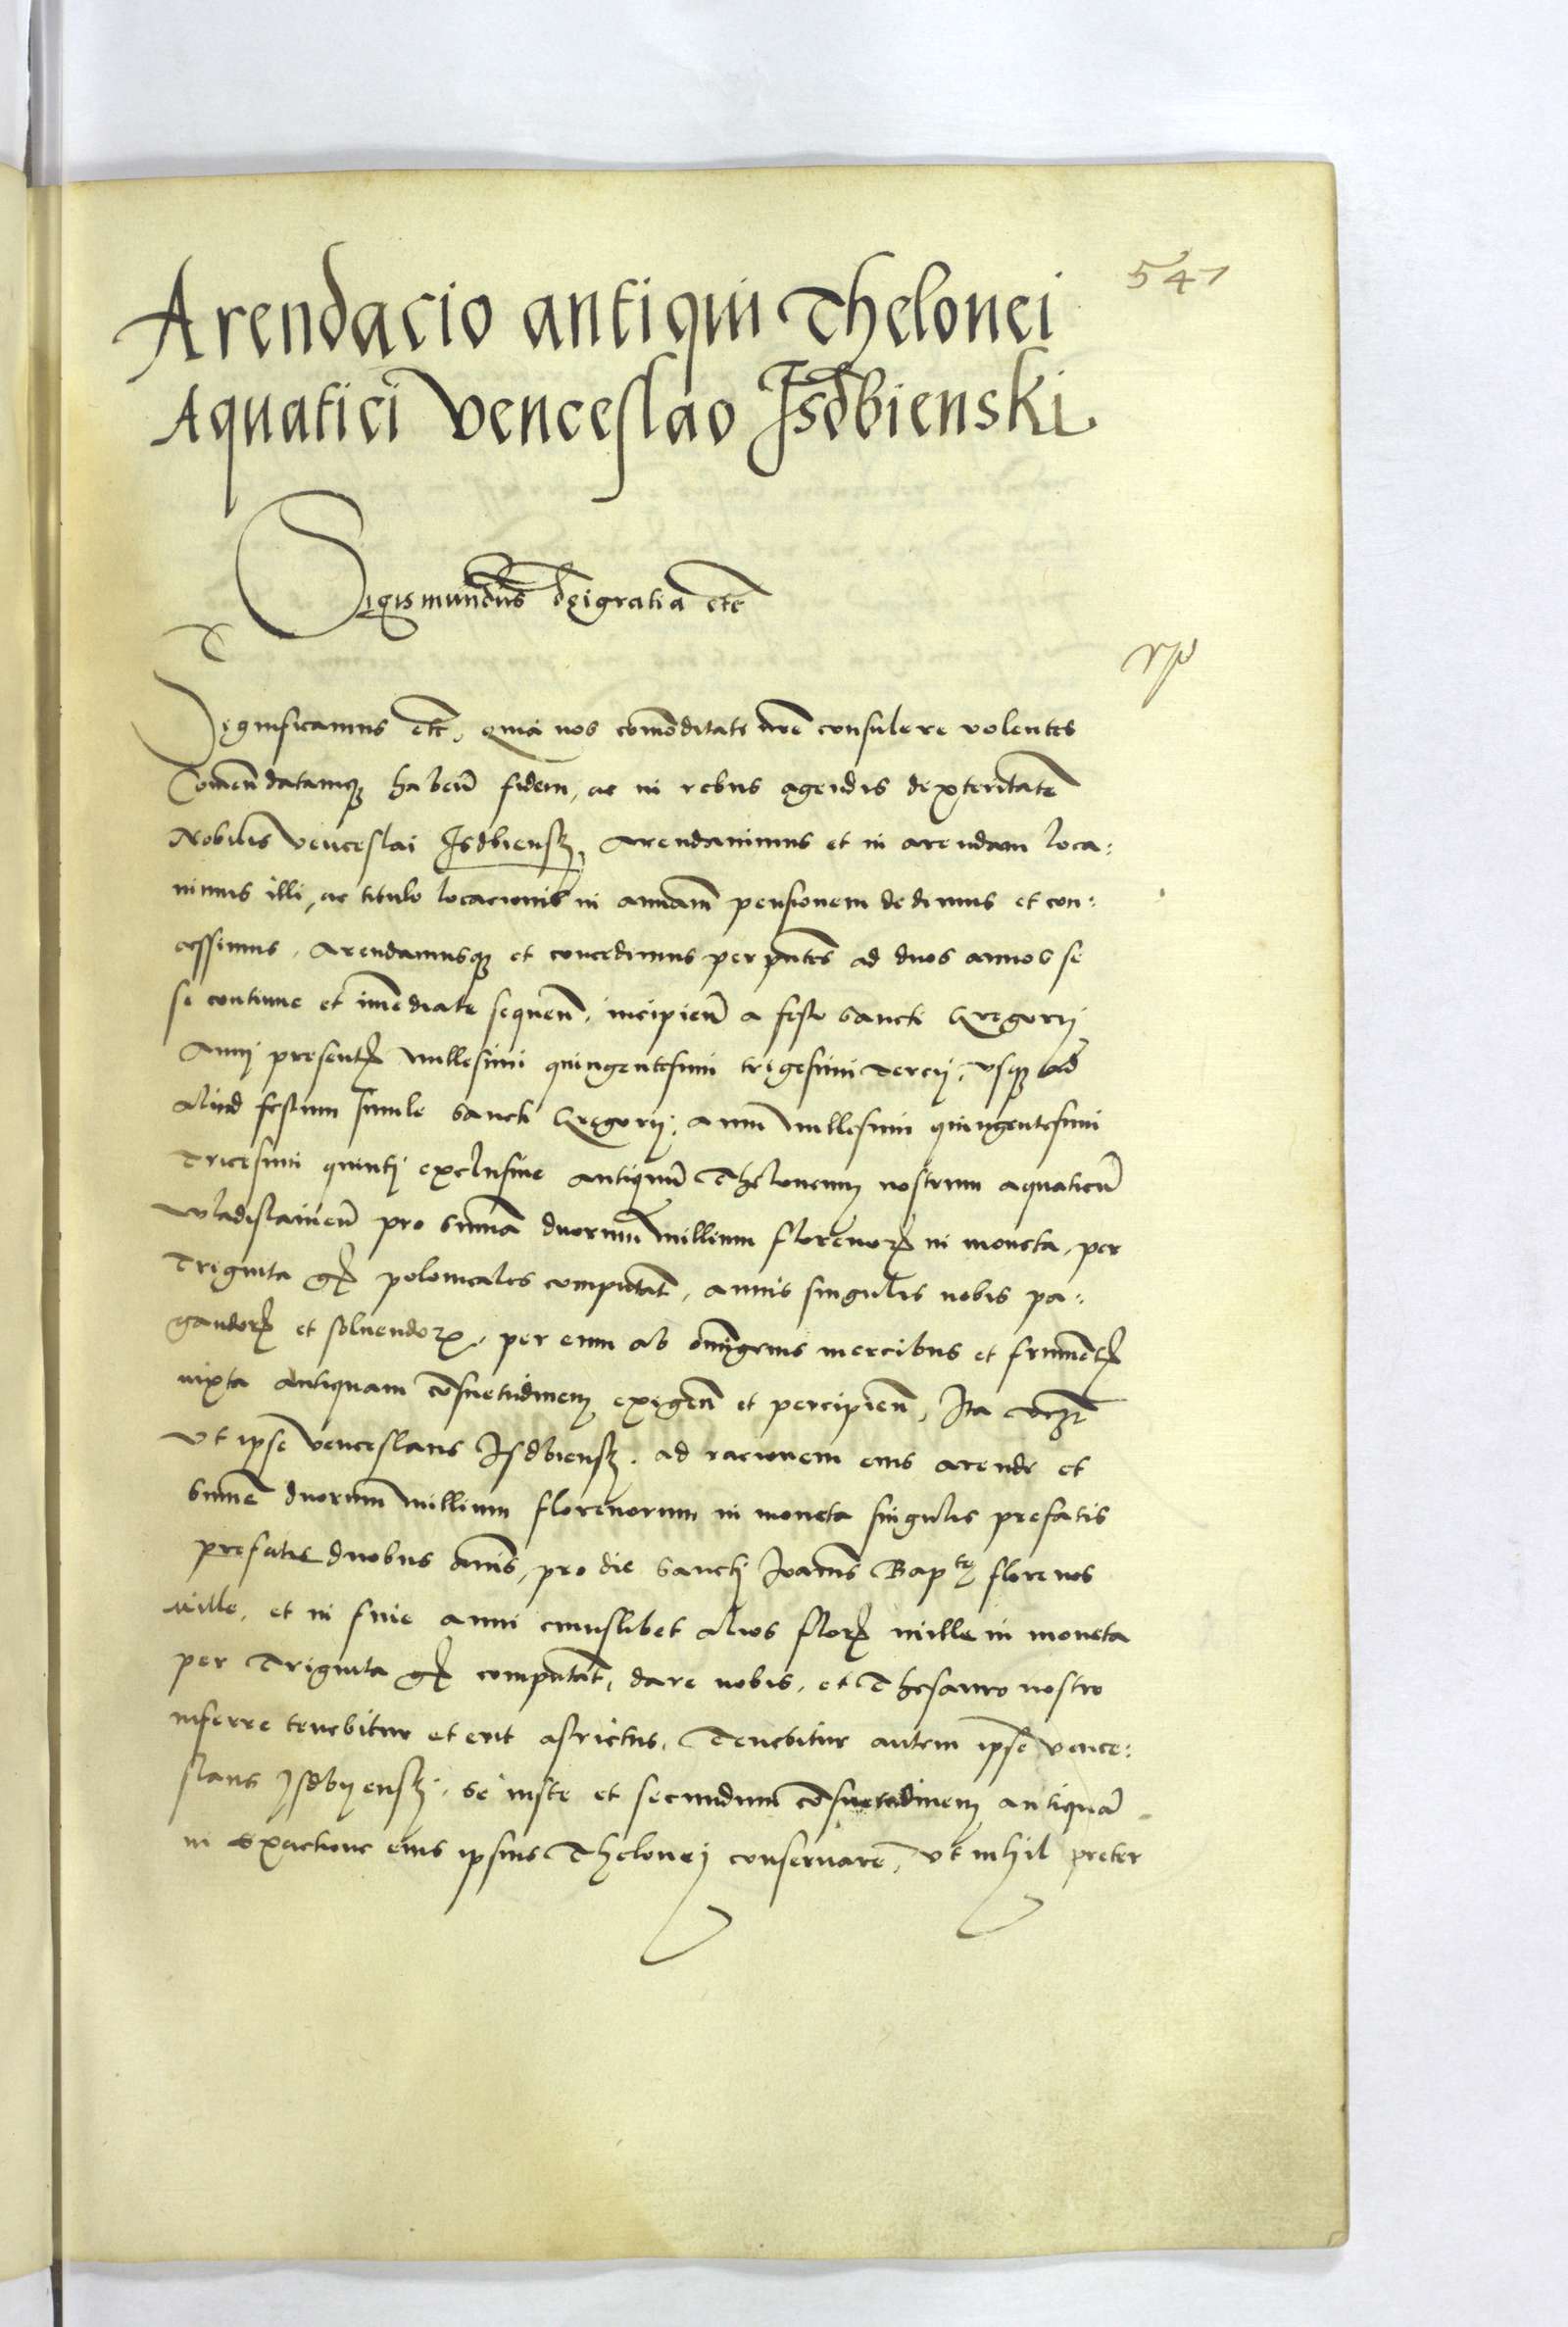 541
Arendacio antiqui Thelonei
Aquatici Venceslao Isdbienski
Sigismundus dei gratia etc̄
Significamus etc̄, Quia nos com̄oditati nr̄e consulere volentes
Com̄endatamq₃ haben̄ fidem, ac in rebus agendis dexteritatē
Nobilis Venceslai Isdbiensk̄, Arendavimus et in arendam loca:
vimus illi, ac titulo locacionis in annuam̄ pensionem dedimus et con:
cessimus, Arendamusq₃ et concedimus per pn̄tes ad duos annos se
se continue et im̄ediate sequen̄, incipien̄ a festo Sancti Gregorij
Anni presentꝭ millesimi quingentesimi trigesimi tercij, vsq₃ ad
aliud festum simile Sancti Gregorij, anni millesimi quingentesimi
Tricesimi quinti exclusive antiquū Theloneum nostrum aquaticū
Vladislavien̄ pro sum̄a duorum millium florenorꝭ in moneta, per
Triginta gꝭ polonicales computan̄, annis singulis nobis pa:
gandorꝭ et solvendoꝝ, per eum ab om̄igenis mercibus et frumentꝭ
iuxta antiquam cōsuetudinem exigen̄ et percipien̄, Ita
Vt ipse Venceslaus Isdbiensk̄, ad racionem eius arende et
Sum̄e duorum millium florenorum in moneta singulis prefatis
prefatis duobus annis, pro die Sancti Ioannis Bap^te florenos
mille, et in fine anni cuiuslibet alios florꝭ mille in moneta
per Triginta gꝭ computan̄, dare nobis, et Thesauro nostro
inferre tenebitur et erit astrictus, Tenebitur autem ipse Vence:
slaus Isdbyensk̄, se iuste et secundum cōsuetudinem antiquā
in exactione eius ipsius Thelonei conservare, vt nihil preter